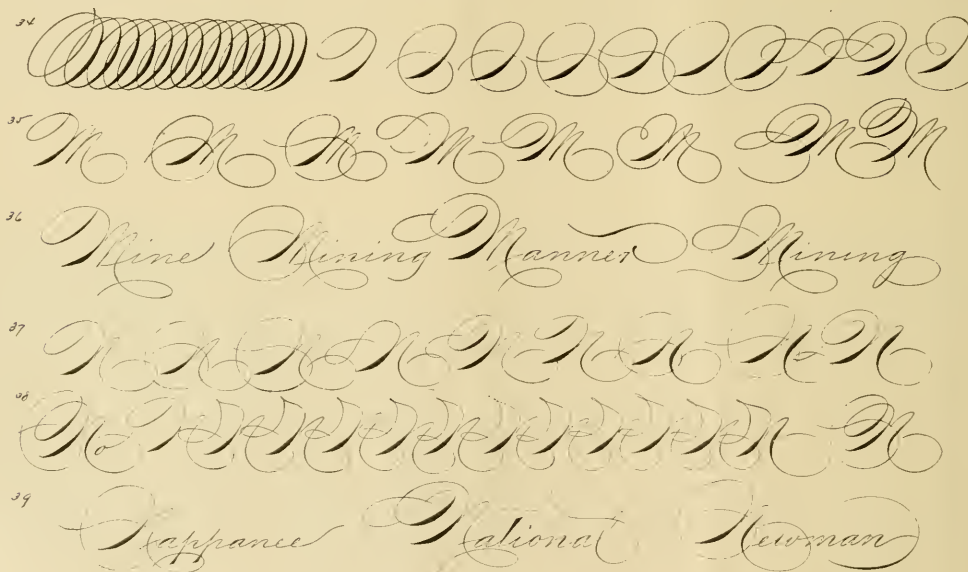 34
35 M M M M M M M M
36 Mine Mining Manner Mining
37 N N N N N N N N N
38 No N
39 Nappanee National Newman